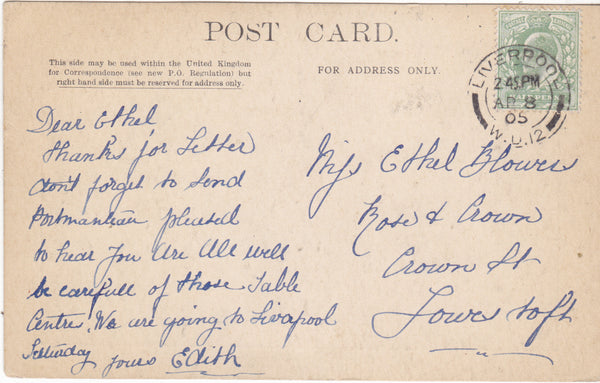 POST CARD.
This side may be used within the United Kingdom
for Correspondence (see new P.O. Regulation) but
right hand side must be reserved for address only.
FOR ADDRESS ONLY.
LIVERPOOL
2.45PM
AP 8
05
W.D.12
Dear Ethel
thanks for Letter
dont forget to send
Portmantean pleased
to hear you are all well
be carefull of those Table
Centres. We are going to Livapool
Satturday yours Edith
Miss Ethel Blowers
Rose & Crown
Crown St
Lowestoft